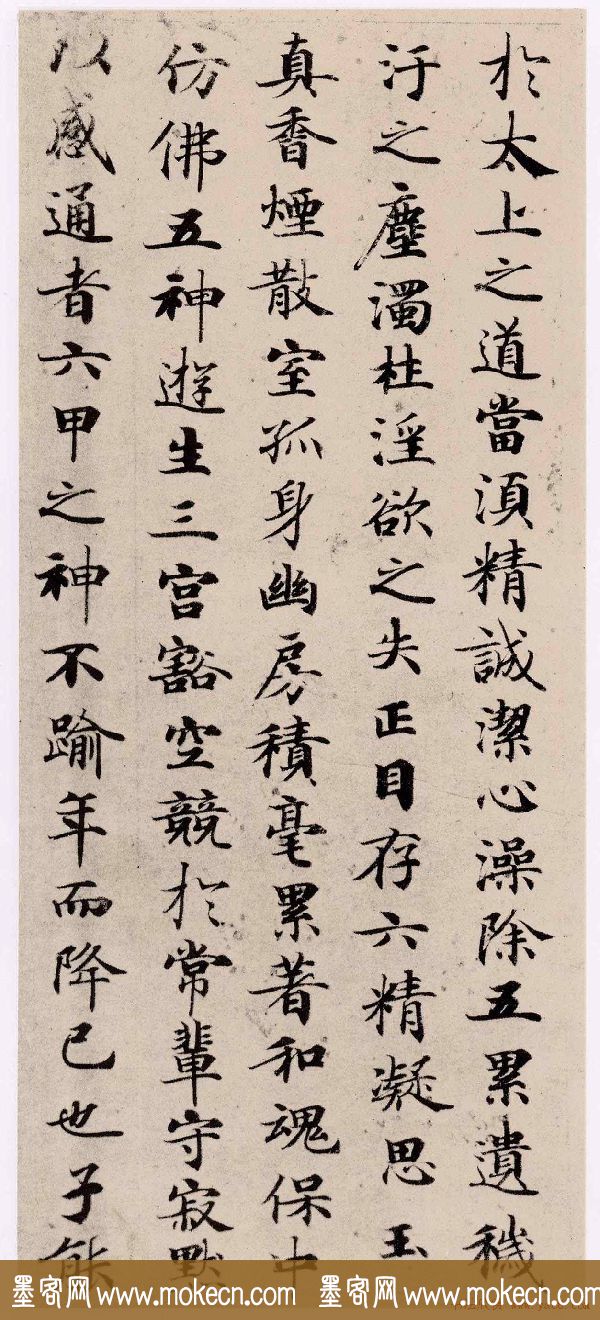 於太上之道當湏精誠潔心澡除五累遺穢
汙之塵濁杜淫欲之失正目存六精凝思玉
真香煙散室孤身幽房積毫累著和魂保中
仿佛五神遊生三宫豁空競於常輩守寂默
以感通者六甲之神不踰年而降已也子能
墨客网 www.mokecn.com 墨客网 www.mokecn.com